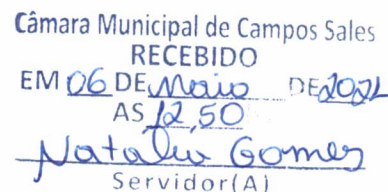 Câmara Municipal de Campos Sales
RECEBIDO
EM 06 DE Maio DE 2021
AS 12,50
Natalia Gomes
Servidor(A)